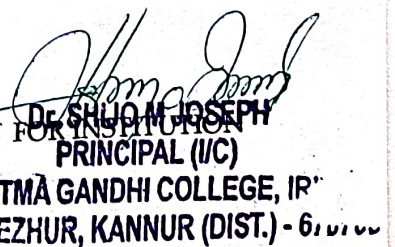 Dr. SHIJO M JOSEPH
FOR INSTITUTION
PRINCIPAL (I/C)
TMA GANDHI COLLEGE,
EZHUR, KANNUR (DIST.) -